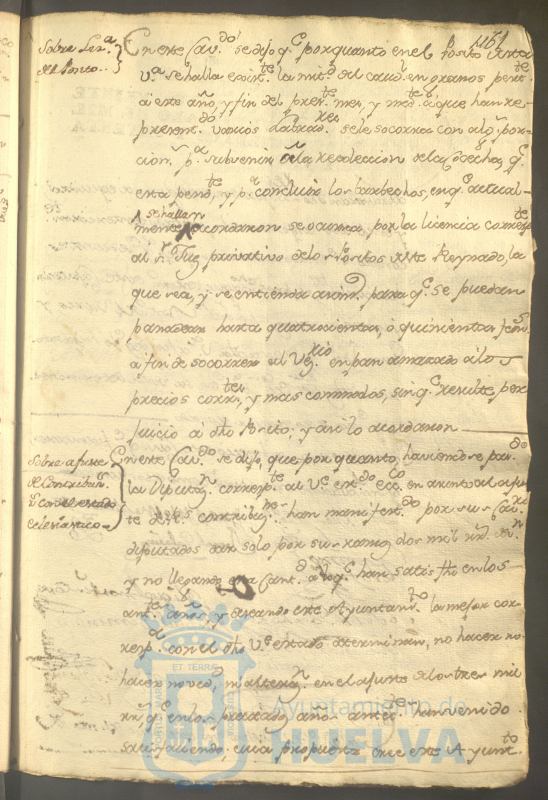 Sobre Liz.ª
del Posito
En este Cav.do se dijo q.e por quanto en el Posito desta
V.ª se halla exist.te la mit.d del caudal en granos pert.te
á este año, y fin del pres.te mes, y med.te á que han re-
present.do varios Labrad.res se les socorra con alg.ª por-
cion p.ª subvenir á la recoleccion de la Cosecha, q.e
esta pend.te, y p.ª concluir los barbechos, en q.e actual-
se hallan
mente acordaron se ocurra, por la licencia corresp.te
al S.r Juez privativo de los Positos de este Reynado, la
que sea, y se entienda asim.o para q.e se puedan
panadear hasta quatrocientas, ó quinientas fan.s
a fin de socorrer al Vez.rio en pan amasado á los
precios corr.tes, y mas commodos, sin q.e resulte per-
juicio á dho Posito; y asi lo acordaron
Sobre ajuste
de Contribuz.n
con el estado
eclesiastico
En este Cav.do se dijo, que por quanto, haviendose pas.do
la Diputaz.n corresp.te al V.e est.do ecc.co en asunto al ajus-
te de sus contribuz.nes han manifest.do por sus Cav.os
diputados dar solo por su ramo dos mil r.s de v.n
y no llegando esta cant.d á lo q.e han satisfho en los
ant.es años, y deseando este Ayuntam.to la mejor cor-
resp.ª con el dho V.e estado determinan, no hacer no-
hacer noved.d, ni alteraz.n en el ajuste de los tres mil
r.s q.e en los pasados años antec.tes han venido
satisfaciendo, cuia propuesta hace este Ayunt.to
ET TERRÆ
Ayuntamiento de
HUELVA